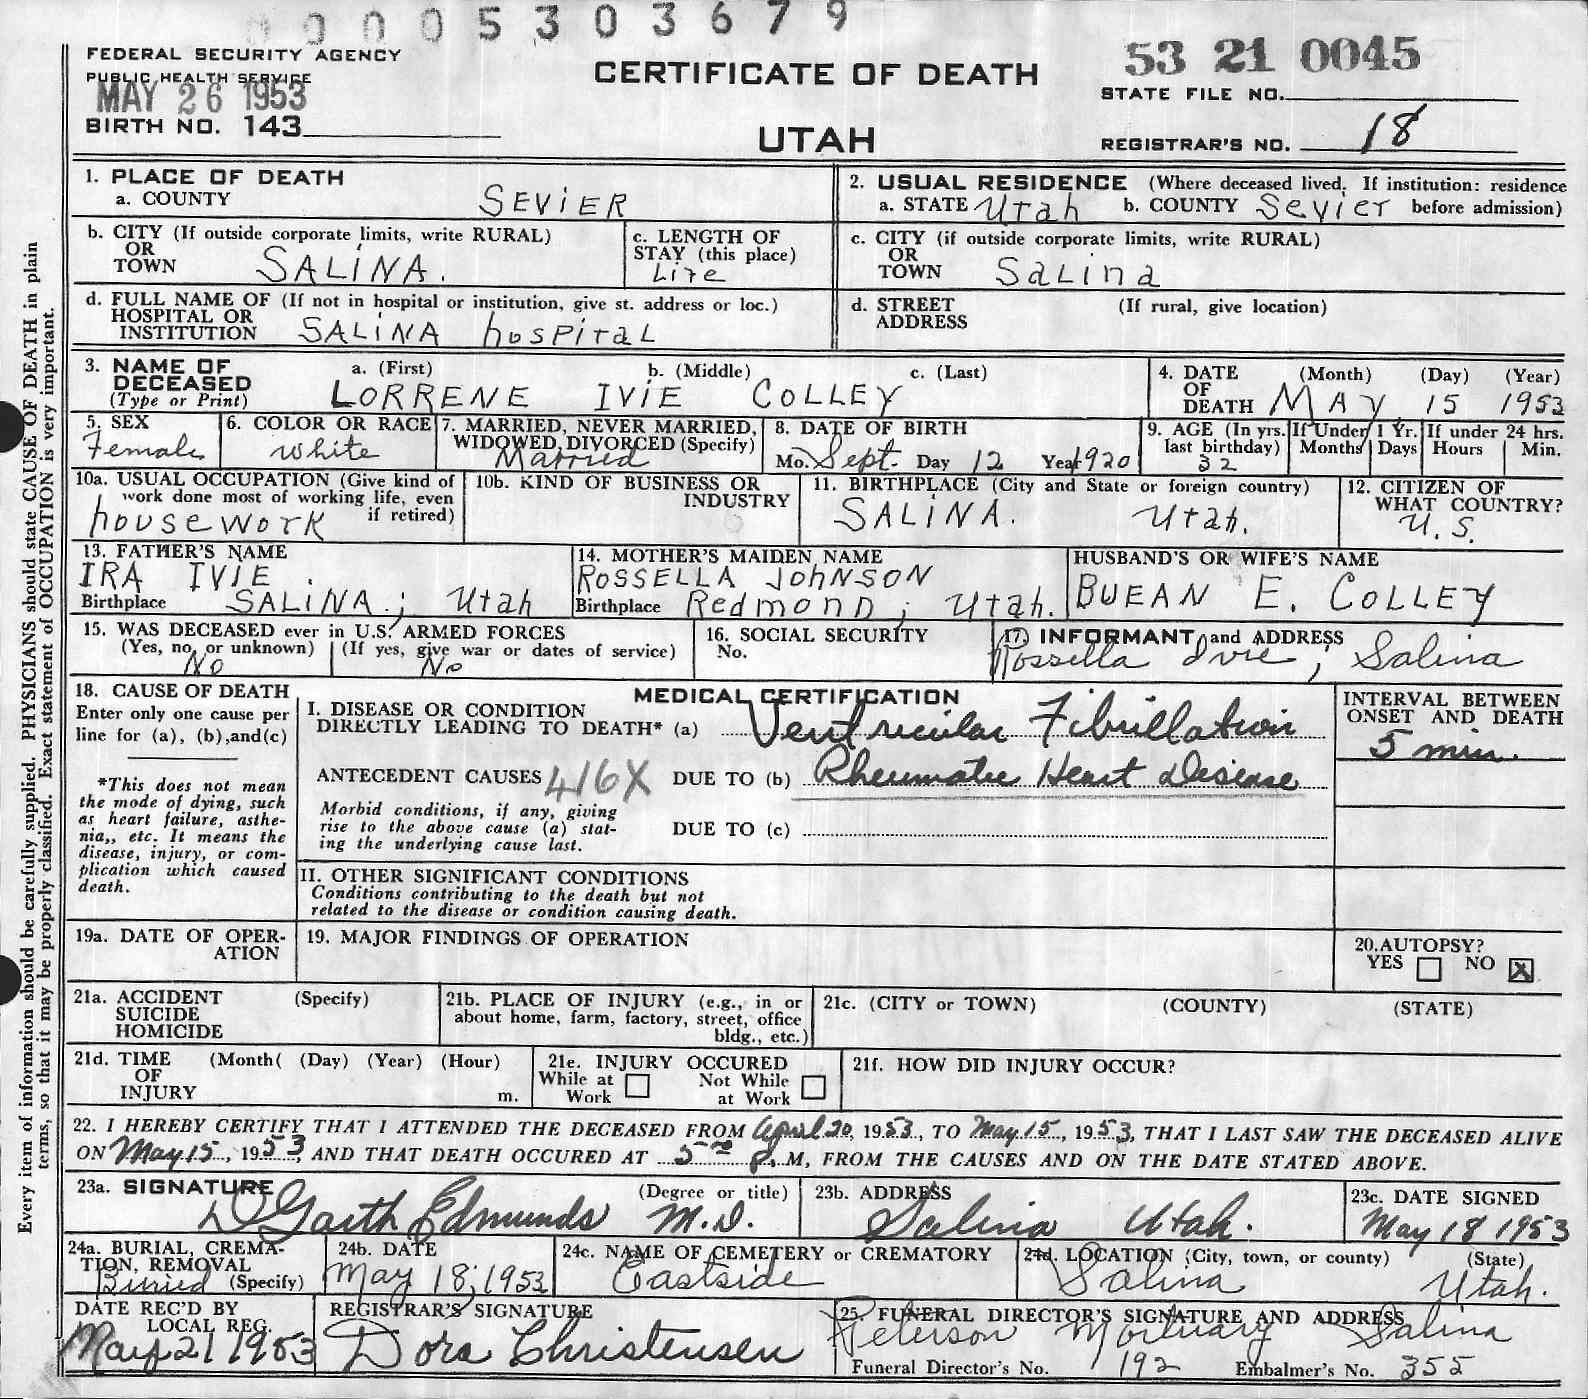 00005303679
FEDERAL SECURITY AGENCY
PUBLIC HEALTH SERVICE
MAY 26 1953
BIRTH NO. 143
CERTIFICATE OF DEATH
UTAH
53 21 0045
STATE FILE NO.
REGISTRAR'S NO. 18
1. PLACE OF DEATH
a. COUNTY SEViER
2. USUAL RESIDENCE (Where deceased lived. If institution: residence
a. STATE Utah b. COUNTY Sevier before admission)
b. CITY (If outside corporate limits, write RURAL)
OR
TOWN SALiNA.
c. LENGTH OF
STAY (this place)
Life
c. CITY (if outside corporate limits, write RURAL)
OR
TOWN Salina
d. FULL NAME OF (If not in hospital or institution, give st. address or loc.)
HOSPITAL OR
INSTITUTION SALiNA hospital
d. STREET (If rural, give location)
ADDRESS
3. NAME OF a. (First) b. (Middle) c. (Last)
DECEASED
(Type or Print) LORRENE IViE COLLEY
4. DATE (Month) (Day) (Year)
OF
DEATH MAY 15 1953
5. SEX
Female
6. COLOR OR RACE
White
7. MARRIED, NEVER MARRIED,
WIDOWED, DIVORCED (Specify)
Married
8. DATE OF BIRTH
Mo. Sept. Day 12 Year 1920
9. AGE (In yrs.
last birthday)
32
If Under 1 Yr.
Months Days
If under 24 hrs.
Hours Min.
10a. USUAL OCCUPATION (Give kind of
work done most of working life, even
if retired)
housework
10b. KIND OF BUSINESS OR
INDUSTRY
11. BIRTHPLACE (City and State or foreign country)
SALiNA. Utah.
12. CITIZEN OF
WHAT COUNTRY?
U.S.
13. FATHER'S NAME
IRA IVIE.
Birthplace SALiNA; Utah
14. MOTHER'S MAIDEN NAME
ROSSELLA JOHNSON
Birthplace Redmond; Utah.
HUSBAND'S OR WIFE'S NAME
BUEAN E. COLLEY
15. WAS DECEASED ever in U.S. ARMED FORCES
(Yes, no, or unknown) (If yes, give war or dates of service)
No No
16. SOCIAL SECURITY
No.
17. INFORMANT and ADDRESS
Rossella Ivie; Salina
18. CAUSE OF DEATH
Enter only one cause per
line for (a), (b),and(c)
*This does not mean
the mode of dying, such
as heart failure, asthe-
nia,, etc. It means the
disease, injury, or com-
plication which caused
death.
MEDICAL CERTIFICATION
I. DISEASE OR CONDITION
DIRECTLY LEADING TO DEATH* (a) Ventricular Fibrillation
ANTECEDENT CAUSES 416X DUE TO (b) Rheumatic Heart Disease
Morbid conditions, if any, giving
rise to the above cause (a) stat-
ing the underlying cause last.
DUE TO (c)
INTERVAL BETWEEN
ONSET AND DEATH
5 min.
II. OTHER SIGNIFICANT CONDITIONS
Conditions contributing to the death but not
related to the disease or condition causing death.
19a. DATE OF OPER-
ATION
19. MAJOR FINDINGS OF OPERATION
20. AUTOPSY?
YES NO X
21a. ACCIDENT (Specify)
SUICIDE
HOMICIDE
21b. PLACE OF INJURY (e.g., in or
about home, farm, factory, street, office
bldg., etc.)
21c. (CITY or TOWN) (COUNTY) (STATE)
21d. TIME (Month( (Day) (Year) (Hour)
OF
INJURY m.
21e. INJURY OCCURED
While at Not While
Work at Work
21f. HOW DID INJURY OCCUR?
22. I HEREBY CERTIFY THAT I ATTENDED THE DECEASED FROM April 20, 1953, TO May 15, 1953, THAT I LAST SAW THE DECEASED ALIVE
ON May 15, 1953, AND THAT DEATH OCCURED AT 5 00 P. M, FROM THE CAUSES AND ON THE DATE STATED ABOVE.
23a. SIGNATURE (Degree or title)
D Garth Edmunds M.D.
23b. ADDRESS
Salina Utah.
23c. DATE SIGNED
May 18 1953
24a. BURIAL, CREMA-
TION, REMOVAL
Buried (Specify)
24b. DATE
May 18, 1953
24c. NAME OF CEMETERY or CREMATORY
Eastside
24d. LOCATION (City, town, or county) (State)
Salina Utah.
DATE REC'D BY
LOCAL REG.
May 21 1953
REGISTRAR'S SIGNATURE
Dora Christensen
25. FUNERAL DIRECTOR'S SIGNATURE AND ADDRESS
Peterson Mortuary Salina
Funeral Director's No. 192 Embalmer's No. 355
Every item of information should be carefully supplied. PHYSICIANS should state CAUSE OF DEATH in plain
terms, so that it may be properly classified. Exact statement of OCCUPATION is very important.